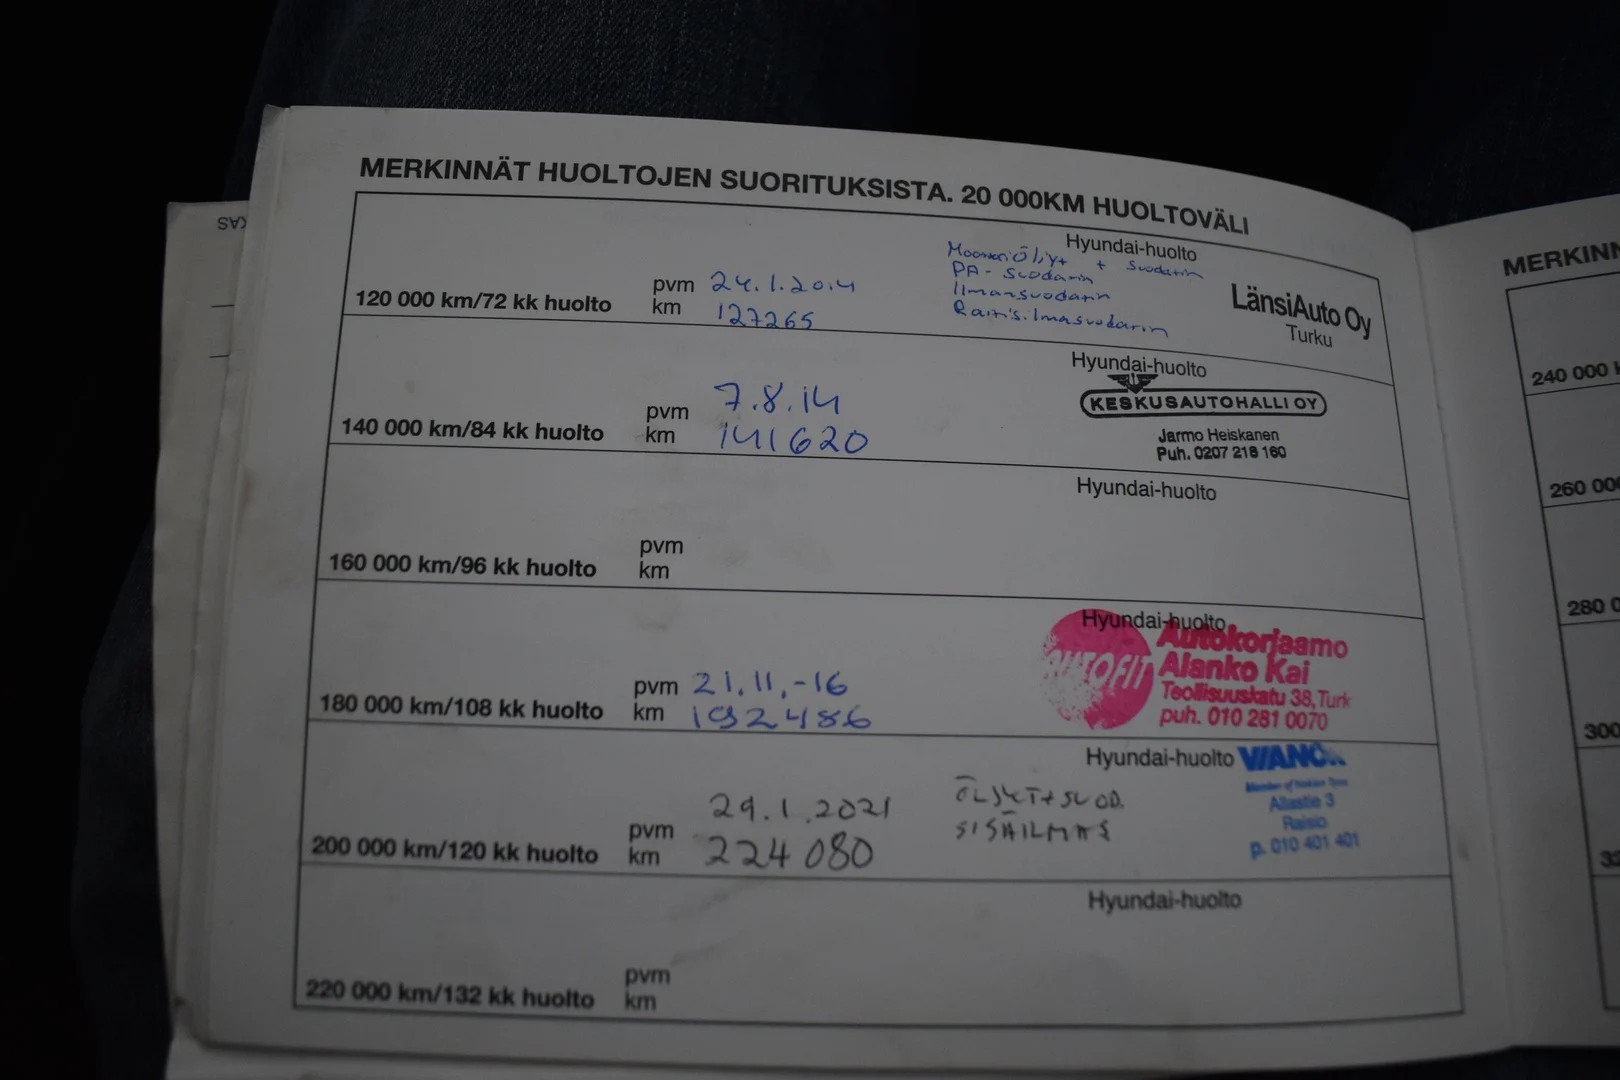 MERKINNÄT HUOLTOJEN SUORITUKSISTA. 20 000KM HUOLTOVÄLI
120 000 km/72 kk huolto
pvm 24.1.2014
km 127265
Hyundai-huolto
Moottoriöljyt + suodatin
PA-suodatin
Ilmansuodatin
Raitisilmasuodatin
LänsiAuto Oy
Turku
140 000 km/84 kk huolto
pvm 7.8.14
km 141620
Hyundai-huolto
KESKUSAUTOHALLI OY
Jarmo Heiskanen
Puh. 0207 218 160
160 000 km/96 kk huolto
pvm
km
Hyundai-huolto
180 000 km/108 kk huolto
pvm 21.11.-16
km 192486
Hyundai-huolto
AUTOFIT
Autokorjaamo
Alanko Kai
Teollisuuskatu 38, Turk
puh. 010 281 0070
200 000 km/120 kk huolto
pvm 29.1.2021
km 224080
Hyundai-huolto
ÖLJYT+SUOD.
SISÄILMAS
VIANOR
Member of Nokian Tyres
Allastie 3
Raisio
p. 010 401 401
220 000 km/132 kk huolto
pvm
km
Hyundai-huolto
KAS
MERKINN
240 000 k
260 000
280 0
300
32